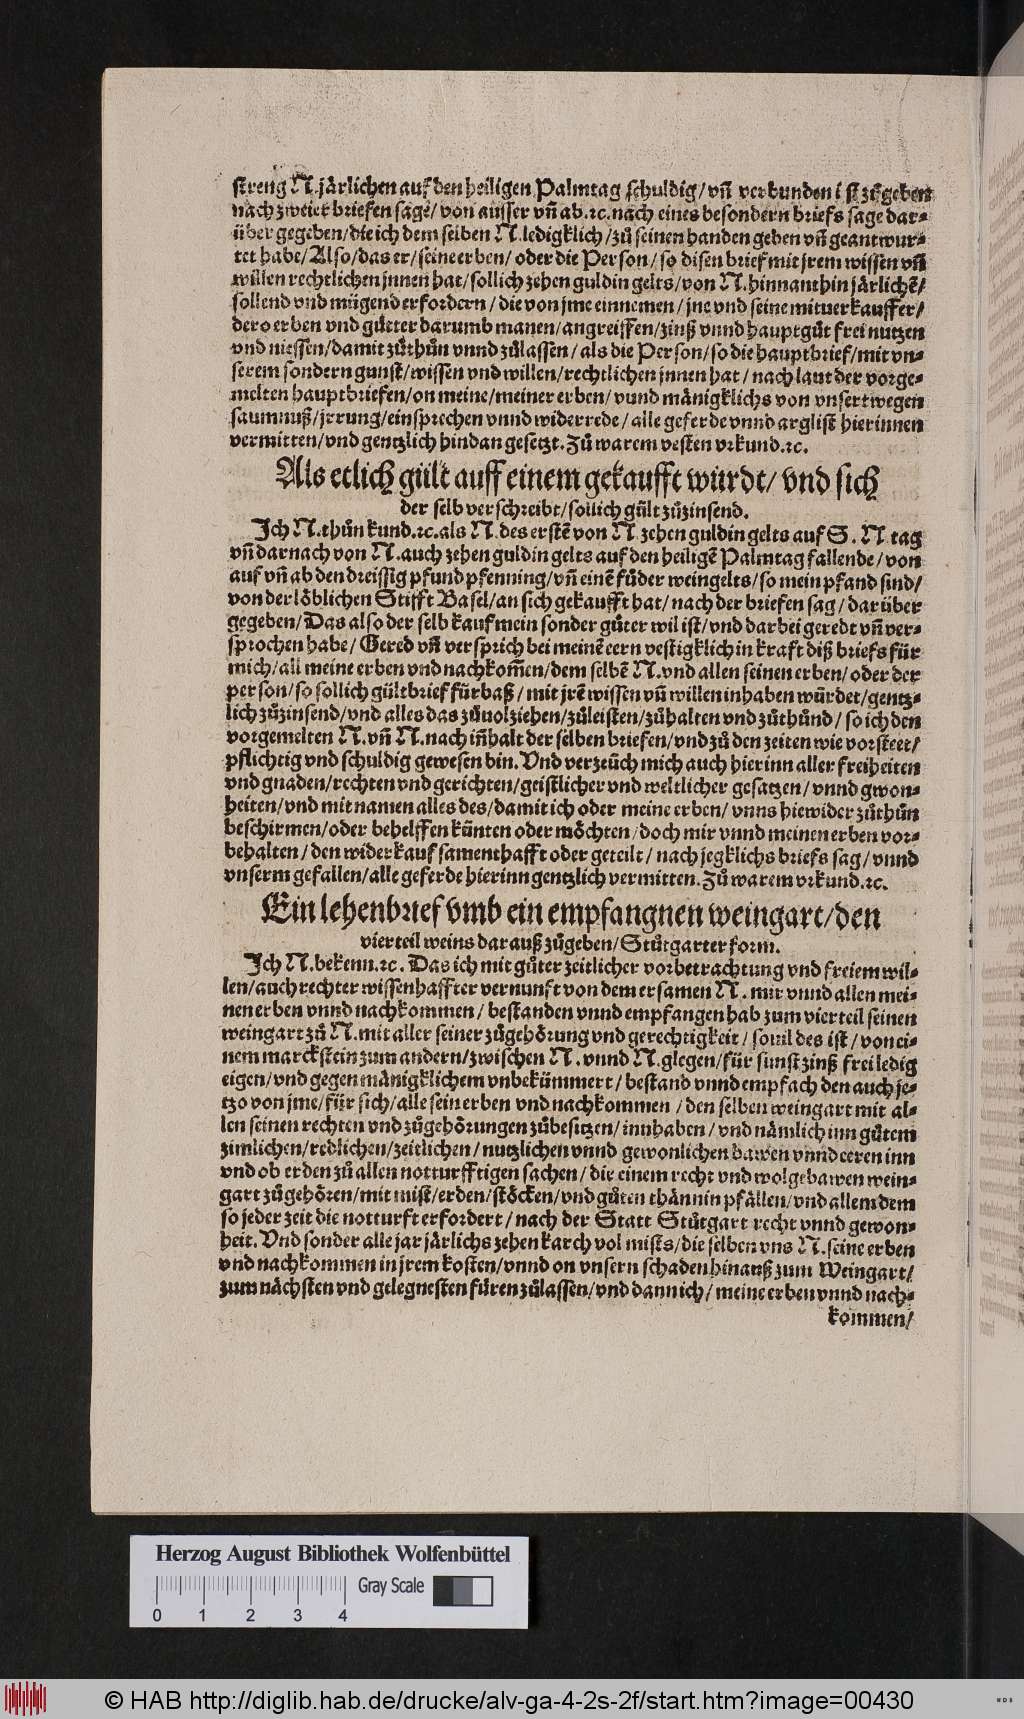 streng N. järlichen auf den heiligen Palmtag schuldig/ vn̄ verbunden ist zůgeben
nach zweier briefen sage/ von ausser vn̄ ab.ꝛc.nach eines besondern briefs sage dar⸗
über gegeben/ die ich dem selben N.ledigklich/ zů seinen handen geben vn̄ geantwur⸗
tet habe/ Also/ das er/ seine erben/ oder die Person/ so disen brief mit jrem wissen vn̄
willen rechtlichen jnnen hat/ sollich zehen guldin gelts/ von N.hinnanthin järlichē/
sollend vnd mügend erfordern/ die von jme einnemen/ jne vnd seine mituerkauffer/
dero erben vnd gůeter darumb manen/ angreiffen/ zinß vnnd hauptgůt frei nutzen
vnd niessen/ damit zůthůn vnnd zůlassen/ als die Person/ so die hauptbrief/ mit vn⸗
serem sondern gunst/ wissen vnd willen/ rechtlichen jnnen hat/ nach laut der vorge⸗
melten hauptbriefen/ on meine/ meiner erben/ vnnd mänigklichs von vnsert wegen
saumnuß/ jrrung/ einsprechen vnnd widerrede/ alle geferde vnnd arglist hierinnen
vermitten/ vnd gentzlich hindan gesetzt. Zů warem vesten vrkund.ꝛc.
Als etlich gült auff einem gekaufft würdt/ vnd sich
der selb verschreibt/ sollich gült zůzinsend.
Ich N.thůn kund.ꝛc.als N.des erstē von N.zehen guldin gelts auf S. N.tag
vn̄ darnach von N.auch zehen guldin gelts auf den heiligē Palmtag fallende/ von
auf vn̄ ab den dreissig pfund pfenning/ vn̄ einē fůder weingelts/ so mein pfand sind/
von der löblichen Stifft Basel/ an sich gekaufft hat/ nach der briefen sag/ darüber
gegeben/ Das also der selb kauf mein sonder gůter wil ist/ vnd darbei geredt vn̄ ver⸗
sprochen habe/ Gered vn̄ versprich bei meinē eern vestigklich in kraft diß briefs für
mich/ all meine erben vnd nachkom̄en/ dem selbē N.vnd allen seinen erben/ oder der
person/ so sollich gültbrief fürbaß/ mit jrē wissen vn̄ willen inhaben würdet/ gentz⸗
lich zůzinsend/ vnd alles das zůuolziehen/ zůleisten/ zůhalten vnd zůthůnd/ so ich den
vorgemelten N.vn̄ N.nach in̄halt der selben briefen/ vnd zů den zeiten wie vorsteet/
pflichtig vnd schuldig gewesen bin. Vnd verzeüch mich auch hierinn aller freiheiten
vnd gnaden/ rechten vnd gerichten/ geistlicher vnd weltlicher gesatzen/ vnnd gwon⸗
heiten/ vnd mit namen alles des/ damit ich oder meine erben/ vnns hiewider zůthůn
beschirmen/ oder behelffen künten oder möchten/ doch mir vnnd meinen erben vor⸗
behalten/ den widerkauf samenthafft oder geteilt/ nach jegklichs briefs sag/ vnnd
vnserm gefallen/ alle geferde hierinn gentzlich vermitten. Zů warem vrkund.ꝛc.
Ein lehenbrief vmb ein empfangnen weingart/ den
vierteil weins darauß zůgeben/ Stůtgarter form.
Ich N.bekenn.ꝛc. Das ich mit gůter zeitlicher vorbetrachtung vnd freiem wil⸗
len/ auch rechter wissenhaffter vernunft von dem ersamen N. mir vnnd allen mei⸗
nen erben vnnd nachkommen/ bestanden vnnd empfangen hab zum vierteil seinen
weingart zů N.mit aller seiner zůgehörung vnd gerechtigkeit/ souil des ist/ von ei⸗
nem marckstein zum andern/ zwischen N. vnnd N.glegen/ für sunst zinß frei ledig
eigen/ vnd gegen mänigklichem vnbekümmert/ bestand vnnd empfach den auch je⸗
tzo von jme/ für sich/ alle sein erben vnd nachkommen/ den selben weingart mit al⸗
len seinen rechten vnd zůgehörungen zůbesitzen/ innhaben/ vnd nämlich inn gůtem
zimlichen/ redlichen/ zeitlichen/ nutzlichen vnnd gewonlichen bawen vnnd eeren inn
vnd ob erden zů allen notturfftigen sachen/ die einem recht vnd wolgebawen wein⸗
gart zůgehören/ mit mist/ erden/ stöcken/ vnd gůten thännin pfälen/ vnd allem dem
so jeder zeit die notturft erfordert/ nach der Statt Stůtgart recht vnnd gewon⸗
heit. Vnd sonder alle jar järlichs zehen karch vol mists/ die selben vns N.seine erben
vnd nachkommen in jrem kosten/ vnnd on vnsern schaden hinauß zum Weingart/
zum nächsten vnd gelegnesten füren zůlassen/ vnd dann ich/ meine erben vnnd nach⸗
kommen/
Herzog August Bibliothek Wolfenbüttel
Gray Scale
0 1 2 3 4
© HAB http://diglib.hab.de/drucke/alv-ga-4-2s-2f/start.htm?image=00430